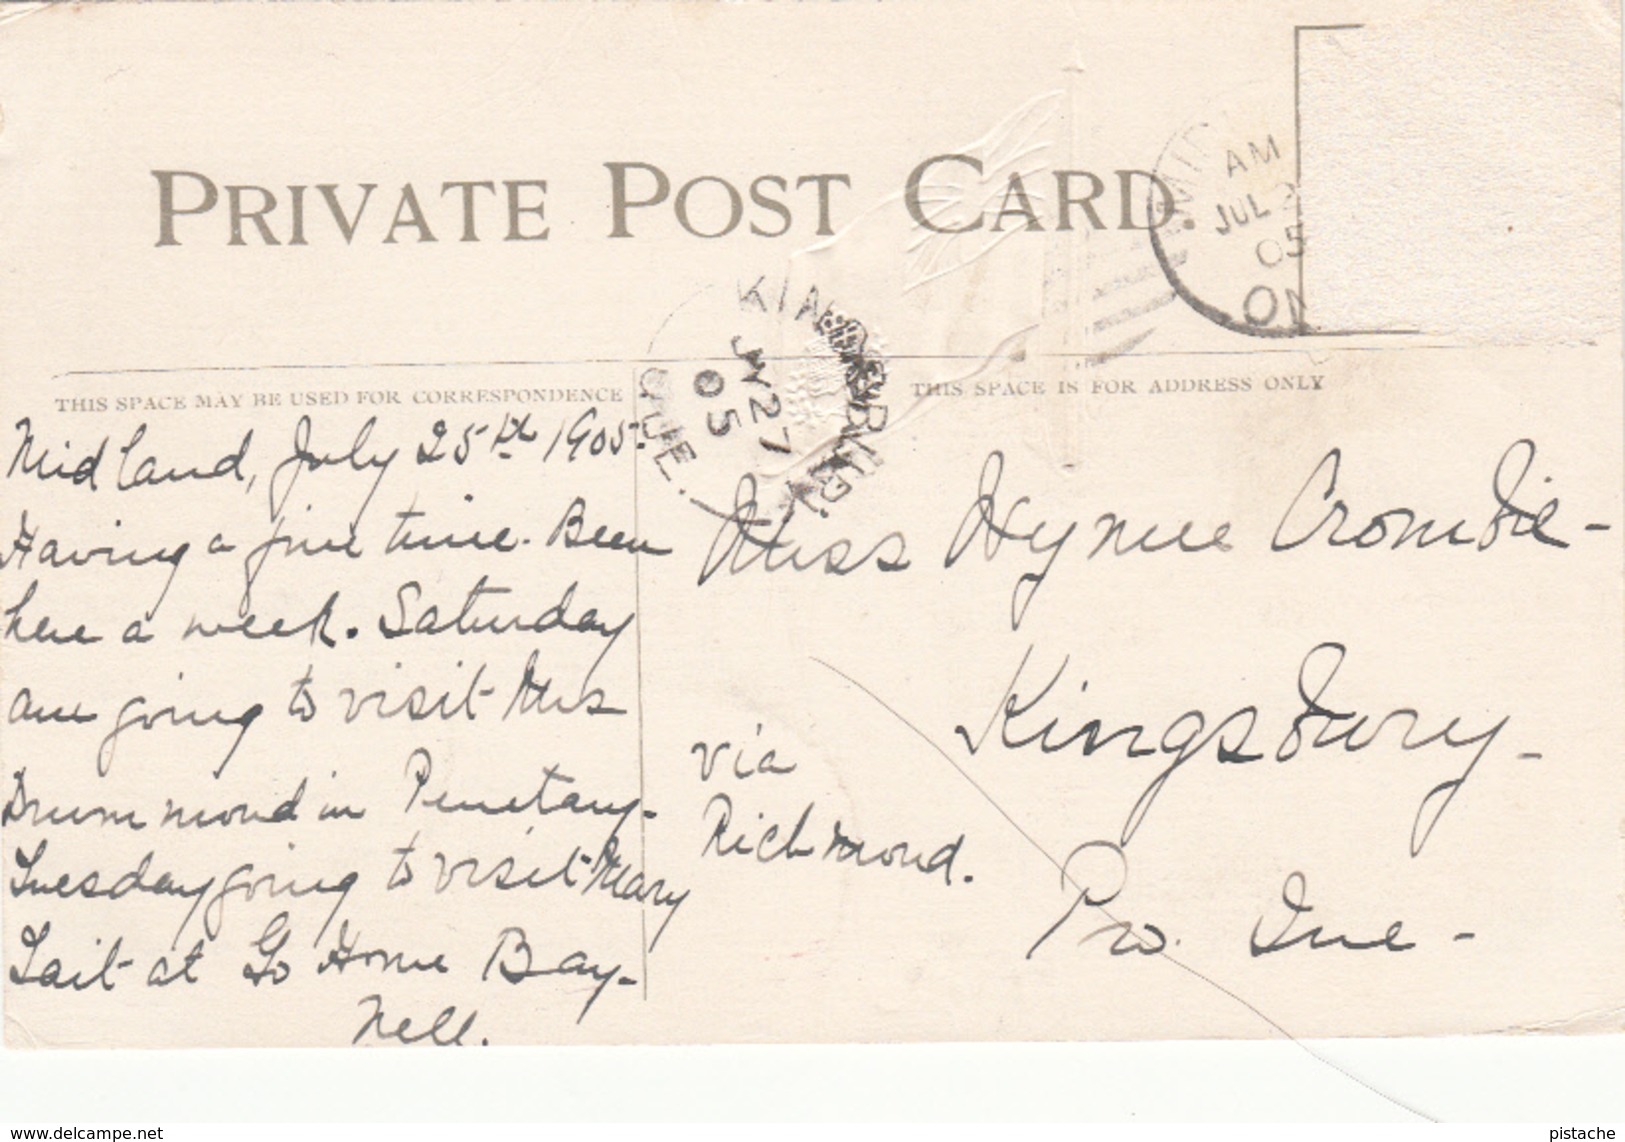 PRIVATE POST CARD.
AM
JUL 2
05
ON
KINGSBURY
JY 27
05
QUE.
THIS SPACE MAY BE USED FOR CORRESPONDENCE
THIS SPACE IS FOR ADDRESS ONLY
Midland, July 25th 1905.
Having a fine time. Been
here a week. Saturday
am going to visit Mrs
Drummond in Penetang.
Tuesday going to visit Mary
Tait at Go Home Bay.
Nell.
Miss Crombie-
Kingsbury-
via
Richmond.
Pro. Que-
www.delcampe.net
pistache